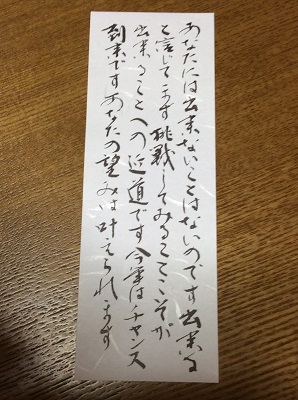 あなたには出来ないことはないのです出来る
と信じてます挑戦してみることこそが
出来ることへの近道です今年はチャンス
到来ですあなたの望みは叶えられます